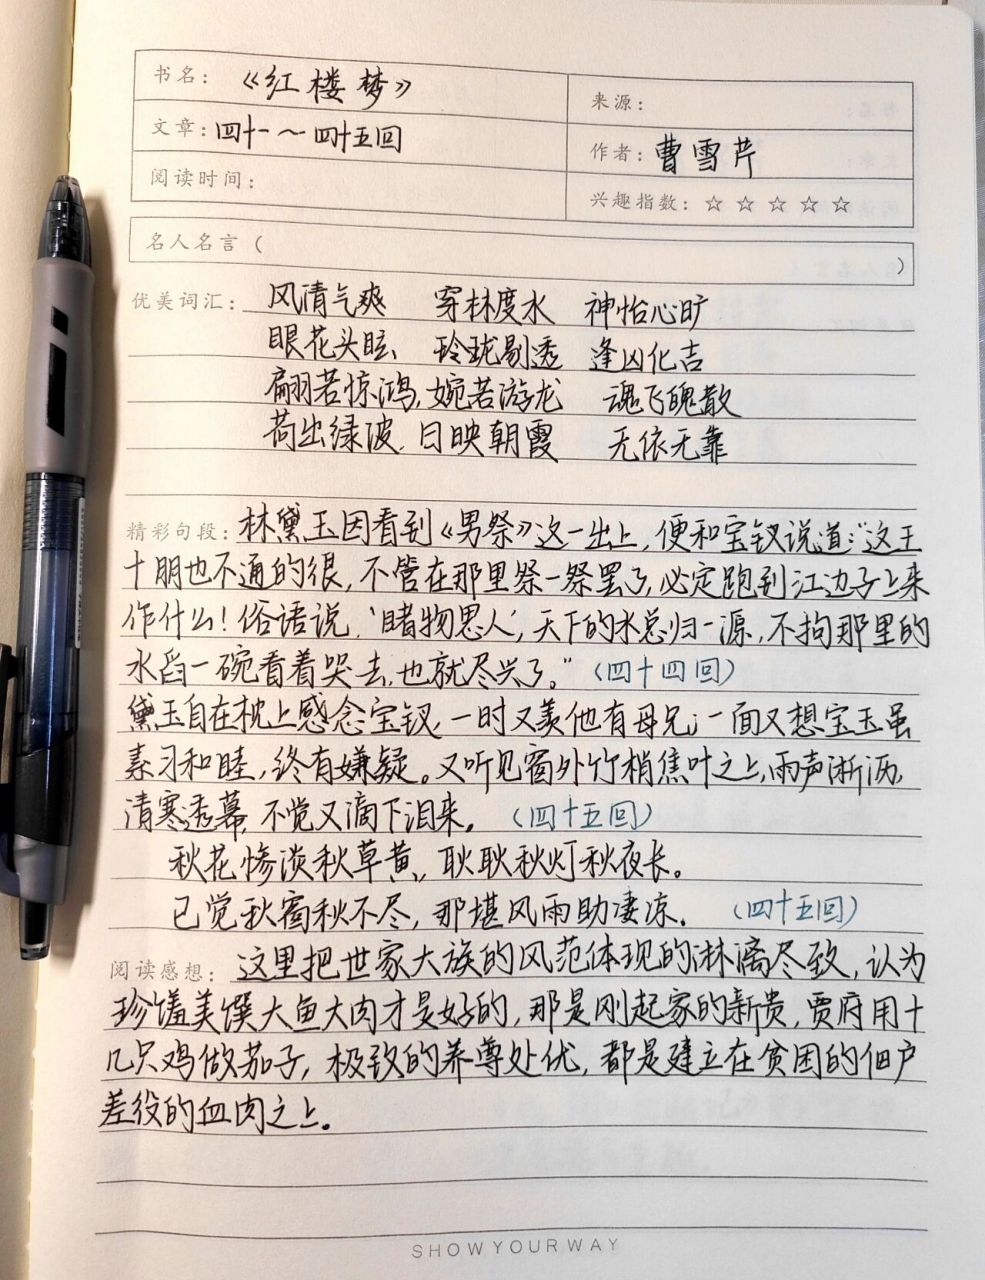 书名：《红楼梦》
来源：
文章：四十一～四十五回
作者：曹雪芹
阅读时间：
兴趣指数：☆ ☆ ☆ ☆ ☆
名人名言（ ）
优美词汇： 风清气爽 穿林度水 神怡心旷
眼花头眩 玲珑剔透 逢凶化吉
翩若惊鸿,婉若游龙 魂飞魄散
荷出绿波,日映朝霞 无依无靠
精彩句段：林黛玉因看到《男祭》这一出上,便和宝钗说道:“这王
十朋也不通的很,不管在那里祭一祭罢了,必定跑到江边子上来
作什么！俗语说,‘睹物思人’,天下的水总归一源,不拘那里的
水舀一碗看着哭去,也就尽兴了。”（四十四回）
黛玉自在枕上感念宝钗,一时又羡他有母兄;一面又想宝玉虽
素习和睦,终有嫌疑。又听见窗外竹梢焦叶之上,雨声淅沥,
清寒透幕,不觉又滴下泪来。（四十五回）
秋花惨淡秋草黄,耿耿秋灯秋夜长。
已觉秋窗秋不尽,那堪风雨助凄凉。（四十五回）
阅读感想：这里把世家大族的风范体现的淋漓尽致,认为
珍馐美馔大鱼大肉才是好的,那是刚起家的新贵,贾府用十
几只鸡做茄子,极致的养尊处优,都是建立在贫困的佃户
差役的血肉之上。
SHOWYOURWAY